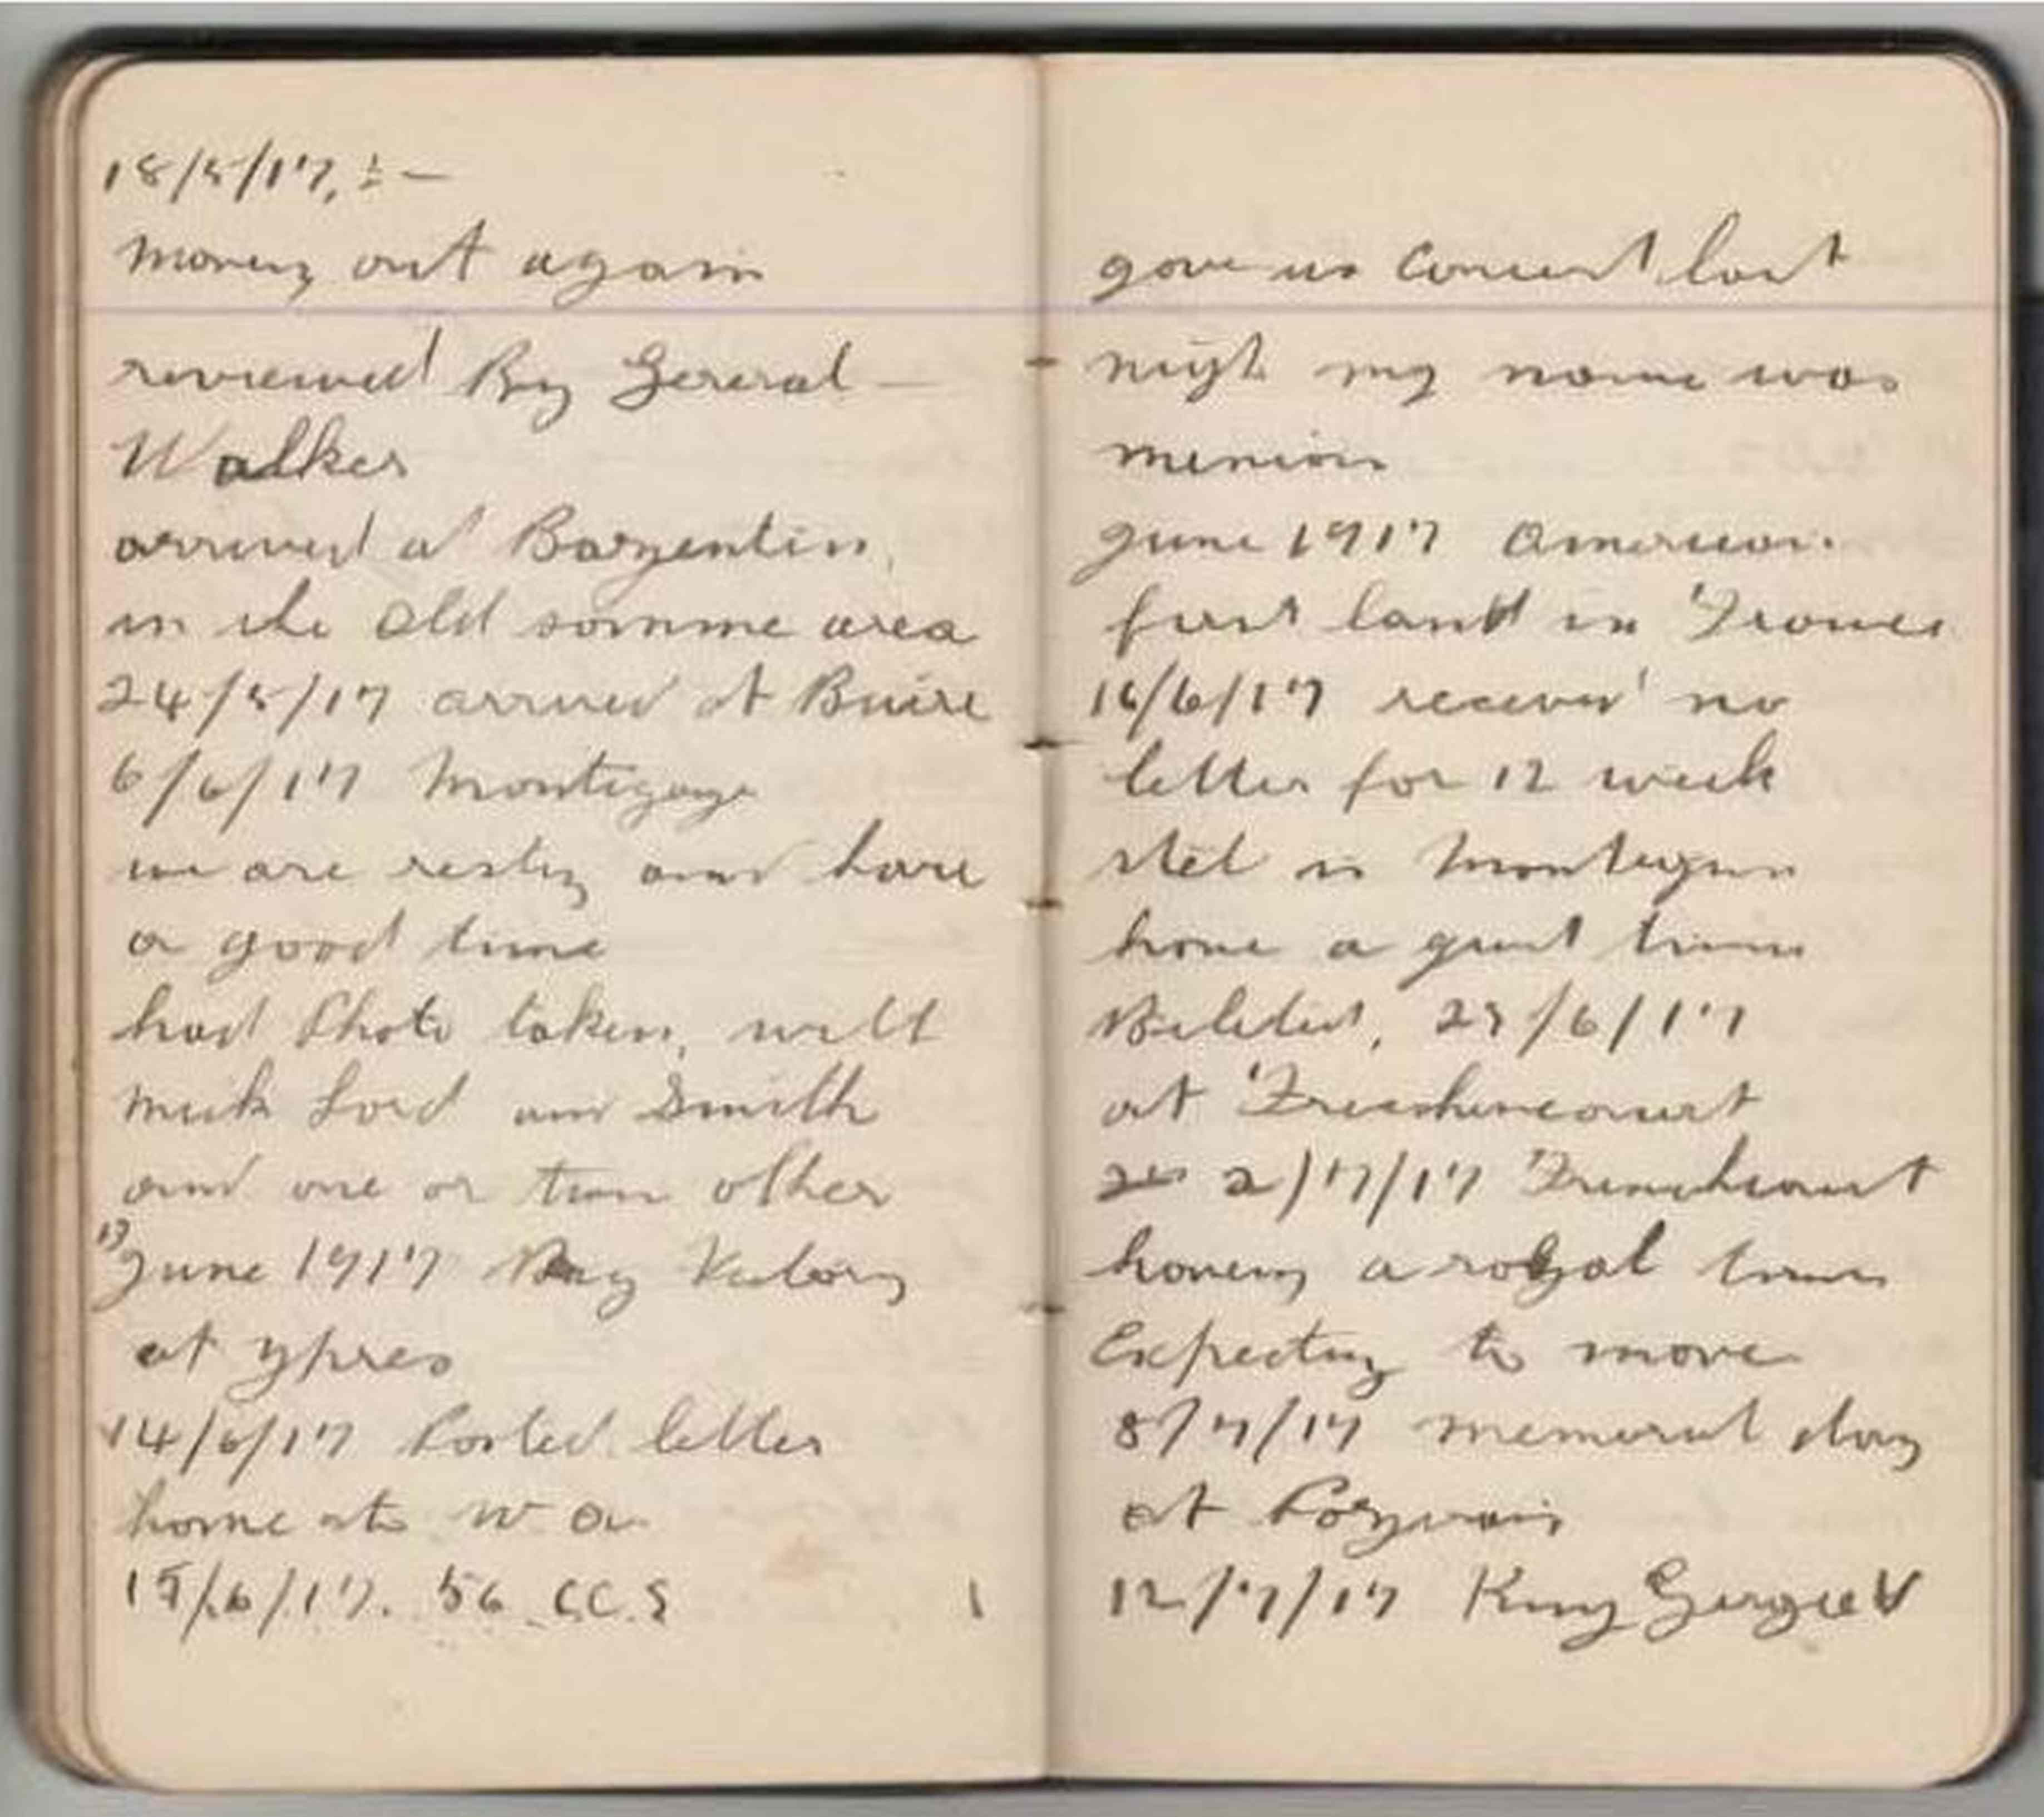 18/5/17, :—
Moveing out again
reviewed By General —
Walker
arrived at Bazentin
in the old somme area
24/5/17 arrived at Buire
6/6/17
we are resting and have
a good time
had Photo taken, with
Mick Lord and Smith
and one or two other
13 June 1917 Big Victory
at ypres
14/6/17 Posted letter
home to W a
15/6/17. 56 C.C.S
gave us Concert last
night my name was
menion
June 1917 American
first land in France
16/6/17 receved no
letter for 12 week
stel in
have a great time
Bileted, 29/6/17
at
2/7/17
haveing a royal time
Expecting to move
8/7/17 memorial day
at
12/7/17 King George V